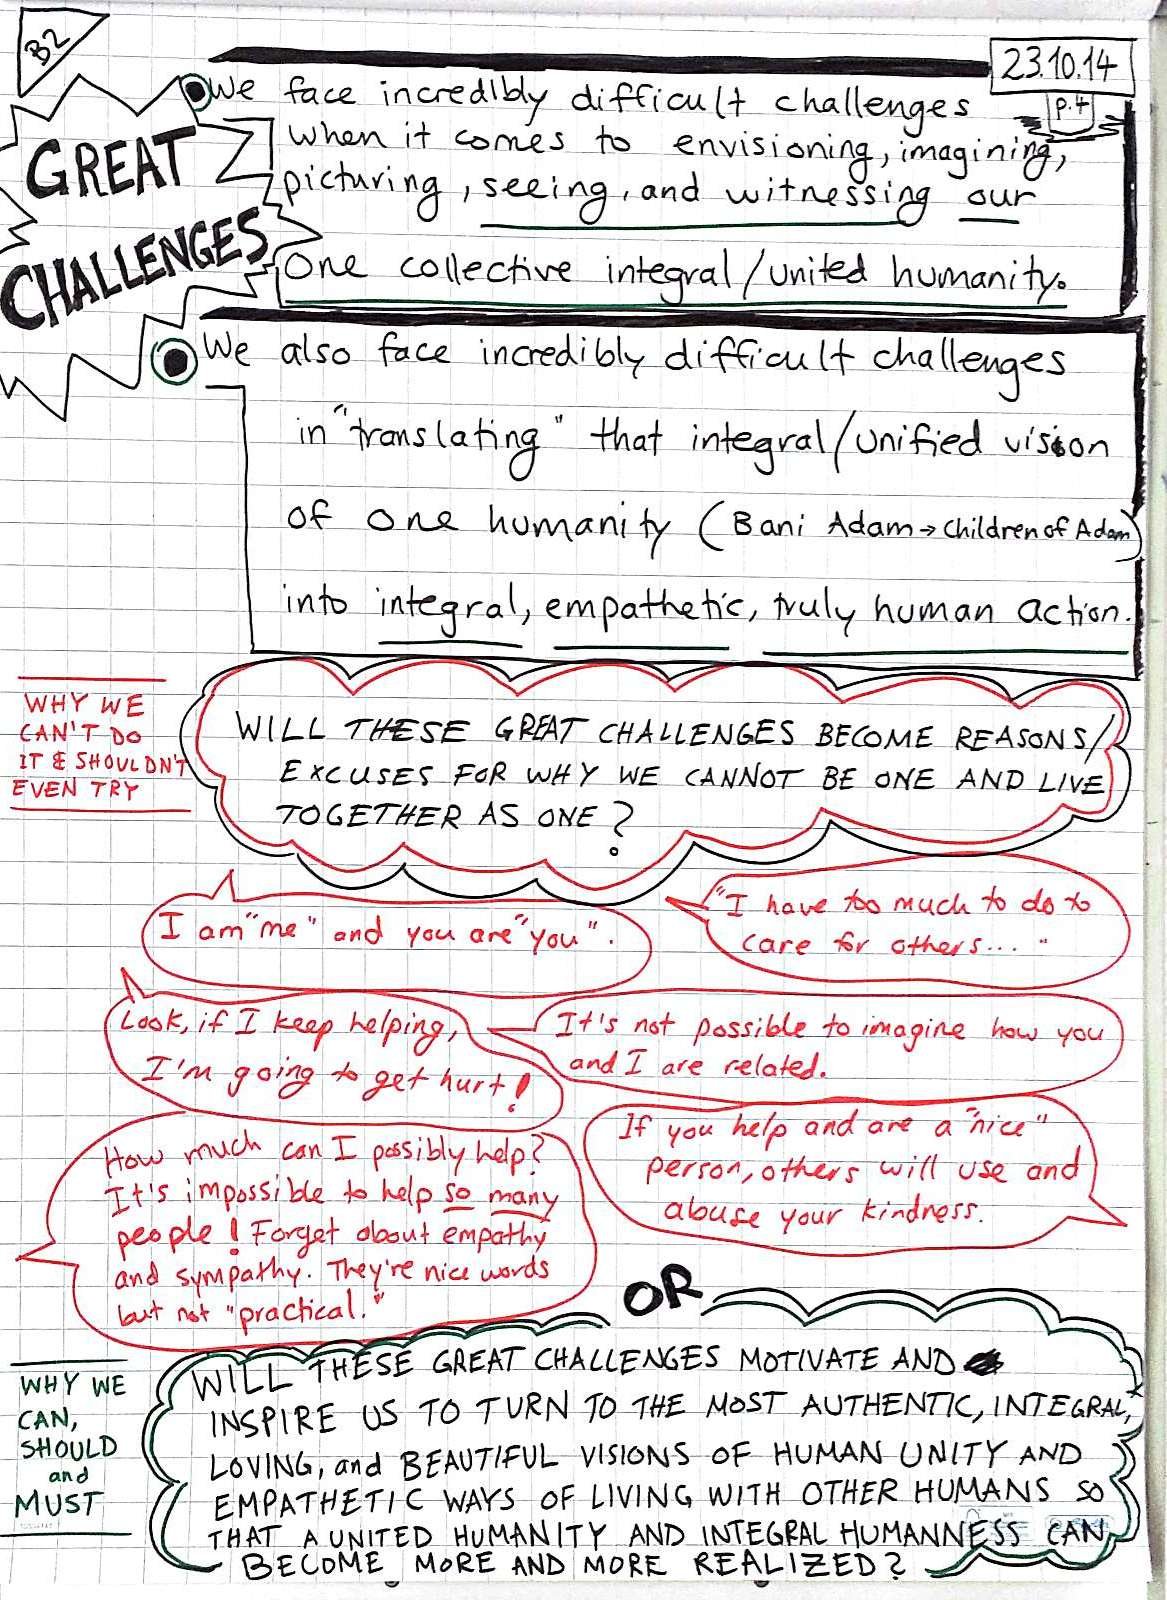 B2
23.10.14
p.4
GREAT
CHALLENGES
We face incredibly difficult challenges
when it comes to envisioning, imagining,
picturing, seeing, and witnessing our
One collective integral/united humanity.
We also face incredibly difficult challenges
in "translating" that integral/unified vision
of one humanity (Bani Adam → Children of Adam)
into integral, empathetic, truly human action.
WHY WE
CAN'T DO
IT & SHOULDN'T
EVEN TRY
WILL THESE GREAT CHALLENGES BECOME REASONS/
EXCUSES FOR WHY WE CANNOT BE ONE AND LIVE
TOGETHER AS ONE?
I am "me" and you are "you".
"I have too much to do to
care for others... "
Look, if I keep helping,
I'm going to get hurt!
It's not possible to imagine how you
and I are related.
How much can I possibly help?
It's impossible to help so many
people! Forget about empathy
and sympathy. They're nice words
but not "practical."
If you help and are a "nice"
person, others will use and
abuse your kindness.
OR
WHY WE
CAN,
SHOULD
and
MUST
WILL THESE GREAT CHALLENGES MOTIVATE AND
INSPIRE US TO TURN TO THE MOST AUTHENTIC, INTEGRAL,
LOVING, and BEAUTIFUL VISIONS OF HUMAN UNITY AND
EMPATHETIC WAYS OF LIVING WITH OTHER HUMANS SO
THAT A UNITED HUMANITY AND INTEGRAL HUMANNESS CAN
BECOME MORE AND MORE REALIZED?